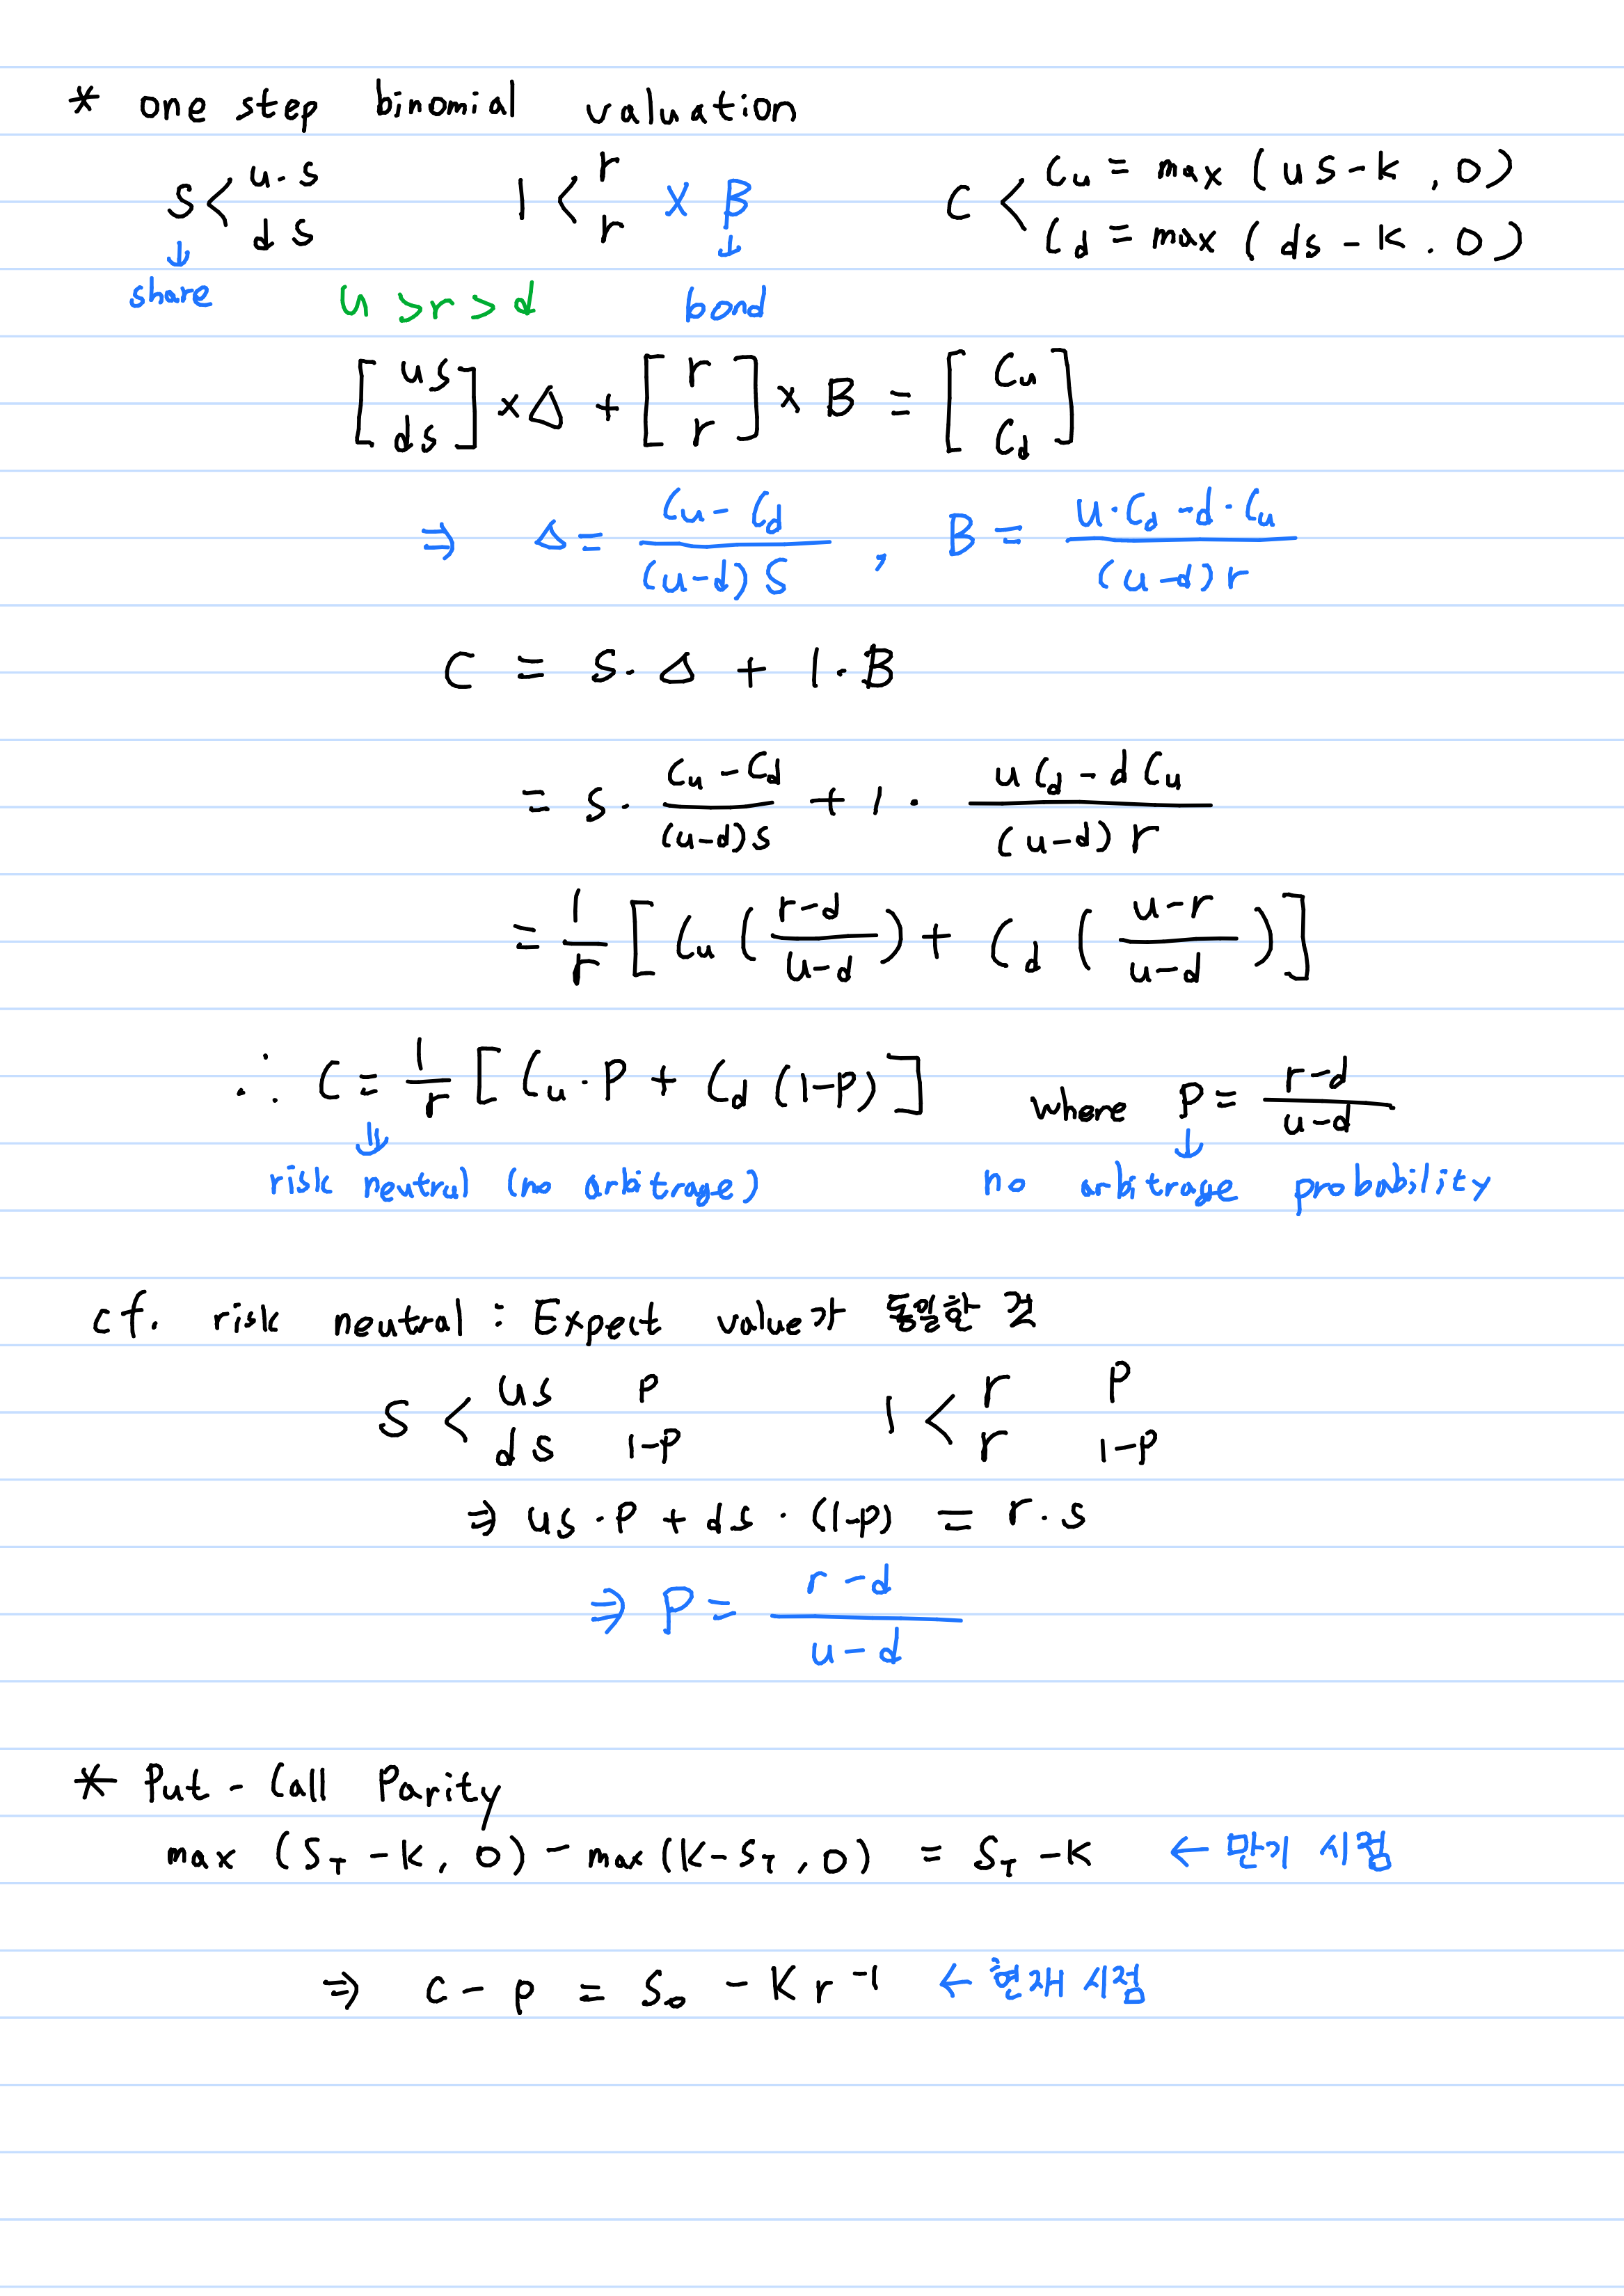 * one step binomial valuation
S < u·s ds   1 < r r × B   C < Cu = max (us-k, 0) Cd = max (ds-k. 0)
↓ share   u > r > d   ↓ bond
[us ds] × Δ + [r r] × B = [Cu Cd]
⇒ Δ = (Cu - Cd)/((u-d)S) , B = (u·Cd - d·Cu)/((u-d)r)
C = S·Δ + 1·B
= S· (Cu - Cd)/((u-d)S) + 1· (uCd - dCu)/((u-d)r)
= 1/r [Cu ((r-d)/(u-d)) + Cd ((u-r)/(u-d))]
∴ C = 1/r [Cu·P + Cd (1-P)]   where P = (r-d)/(u-d)
⇓ risk neutral (no arbitrage)   ↓ no arbitrage probability
cf. risk neutral : Expect value가 동일한 것
S < us P ds 1-P   1 < r P r 1-P
⇒ us·P + ds·(1-P) = r·s
⇒ P = (r-d)/(u-d)
* Put - Call Parity
max (S_T - K, 0) - max (K - S_T, 0) = S_T - K ← 만기 시점
⇒ C - P = S₀ - K r⁻¹ ← 현재 시점